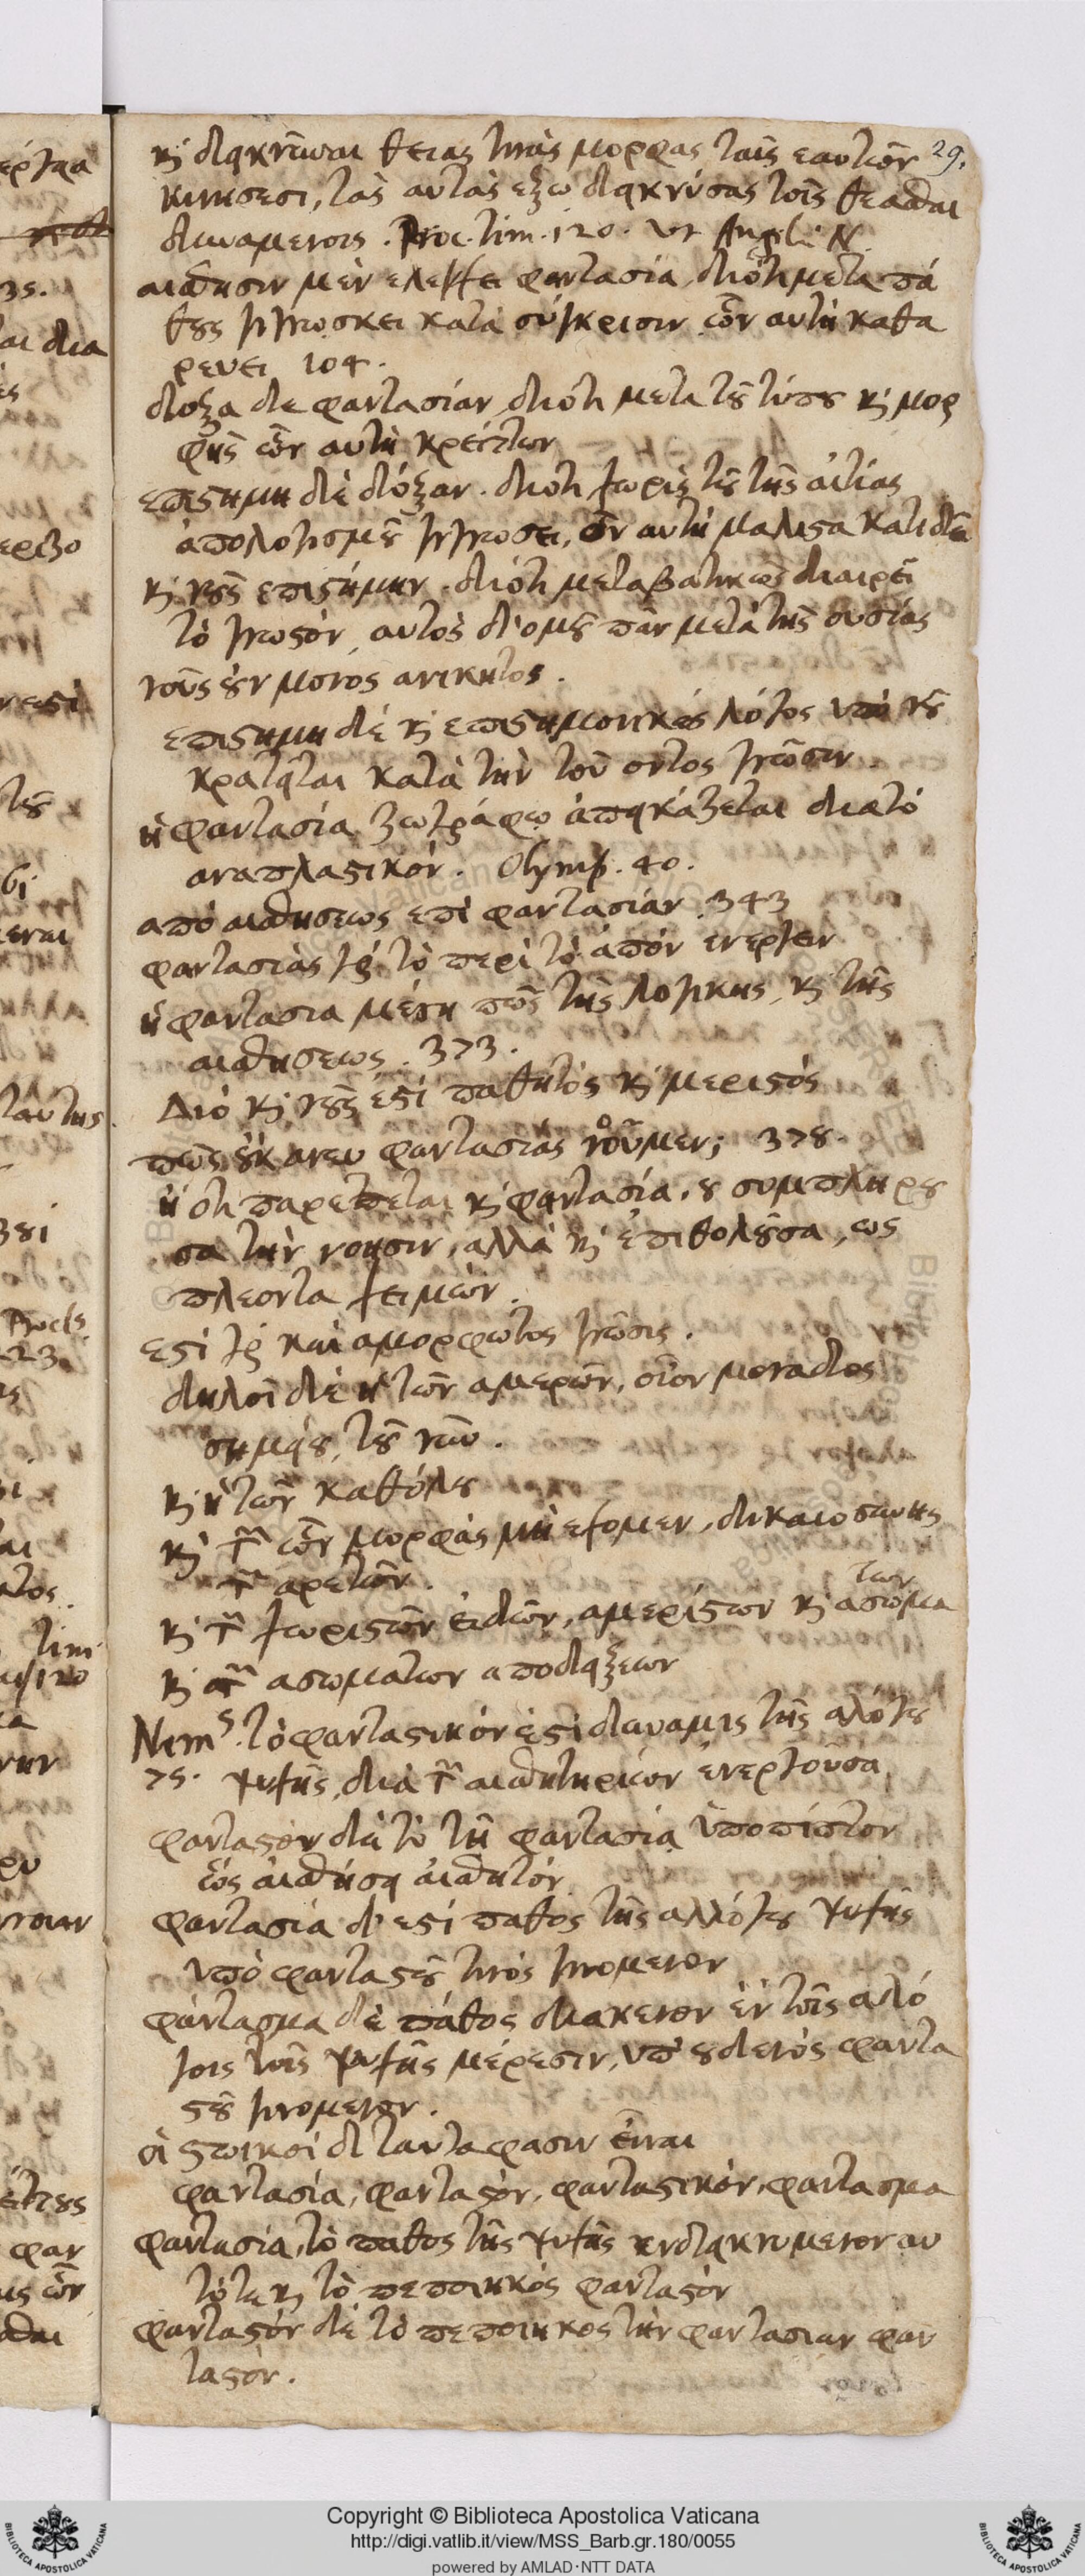 κ διακνῶσαι θειας τινὰς μορφας ταῖς εαυτῶν 29.
κινησεσι, τὰς αυτὰς εξω διακνύσας τοῖς θεᾶσθαι
δυναμενοις. Proc. tim. 120. Vt Angeli N.
αισθησιν μὲν ελεγχει φαντασία, διότι μετα πά
θους γιγνωσκει κατὰ σύγκρισιν ὧν αυτὴ καθα
ρευει 104.
δοξα δε φαντασίαν, διότι μετα τοῦ τύπου κ μορ
φῆς ὧν αυτὴ κρείττων
επιστημη δὲ δόξαν. διότι χωρὶς τοῦ τῆς αἰτίας
ἀπολογισμοῦ γιγνωσει, ὃν αυτὴ μαλιστα
κ νοῦς επιστήμην. διότι μεταβατικῶς διαιρεῖ
τὸ γνωστόν, αυτὸς δ' ομοῦ πᾶν μετὰ τῆς ουσίας
νοῦς οὖν μονος ανικητος.
επιστημη δὲ κ επιστημονικὸς λόγος υπὸ νοῦ
κρατειται κατὰ τὴν τοῦ οντος γνῶσιν.
ἡ φαντασία ζωγράφῳ ἀπεικάζεται διατό
αναπλαστικόν. Olymp. 40.
απὸ αισθησεως επὶ φαντασίαν. 343
φαντασιας γὰρ τὸ περὶ τὸ ἀπὸν ενεργειν
ἡ φαντασια μέση πῶς τῆς λογικης, κ τῆς
αισθησεως. 373.
Διό κ νοῦς ἐστὶ παθητὸς κ μεριστός
πῶς οὐκ ανευ φαντασίας νοοῦμεν; 378.
ἢ ὁτι παρεπεται κ φαντασία. ου συμπληρου
σα τὴν νοησιν, αλλὰ κ ἐπιθολοῦσα, ως
πλεοντα χειμών.
εστι γὰρ καὶ αμορφωτος γνῶσις.
δηλοῖ δὲ ἡ τῶν αμερῶν, οἷον μοναδος
σημειου, τοῦ νῦν.
κ ἡ τῶν καθόλου
κ τῶν ὧν μορφὰς μὴ εχομεν, δικαιοσυνης
τῶν αρετῶν.
κ τῶν χωριστῶν ειδῶν, αμερίστων κ ασωμα των
κ τῶν ασωματων αποδειξεων
Nemˢ. τὸ φανταστικόν ἐστι δυναμις τῆς αλόγου
75. ψυχῆς, διὰ τῶν αισθητηρίων ἐνεργοῦσα,
φανταστον δὲ τὸ τῇ φαντασίᾳ ὑποπίπτον
ὡς αισθήσει αἰσθητόν
φαντασία δ' εστὶ παθος τῆς αλλόγου ψυχῆς
υπὸ φανταστοῦ τινὸς γινομενον
φάντασμα δὲ πάθος διακενον ἐν τοῖς αλό
γοις τοῖς ψυχῆς μέρεσιν, υπ' ουδενὸς φαντα
στοῦ γινομενον.
οἱ στωικοί δὲ ταυτα φασιν εἶναι
φαντασία, φανταστόν, φανταστικόν, φαντασμα
φαντασία, τὸ παθος τῆς ψυχῆς ενδεικνυμενον αυ
τό τε κ τὸ πεποιηκός φανταστόν
φανταστὸν δὲ τὸ πεποιηκος τὴν φαντασιαν φαν
ταστόν.
Copyright © Biblioteca Apostolica Vaticana
http://digi.vatlib.it/view/MSS_Barb.gr.180/0055
powered by AMLAD·NTT DATA